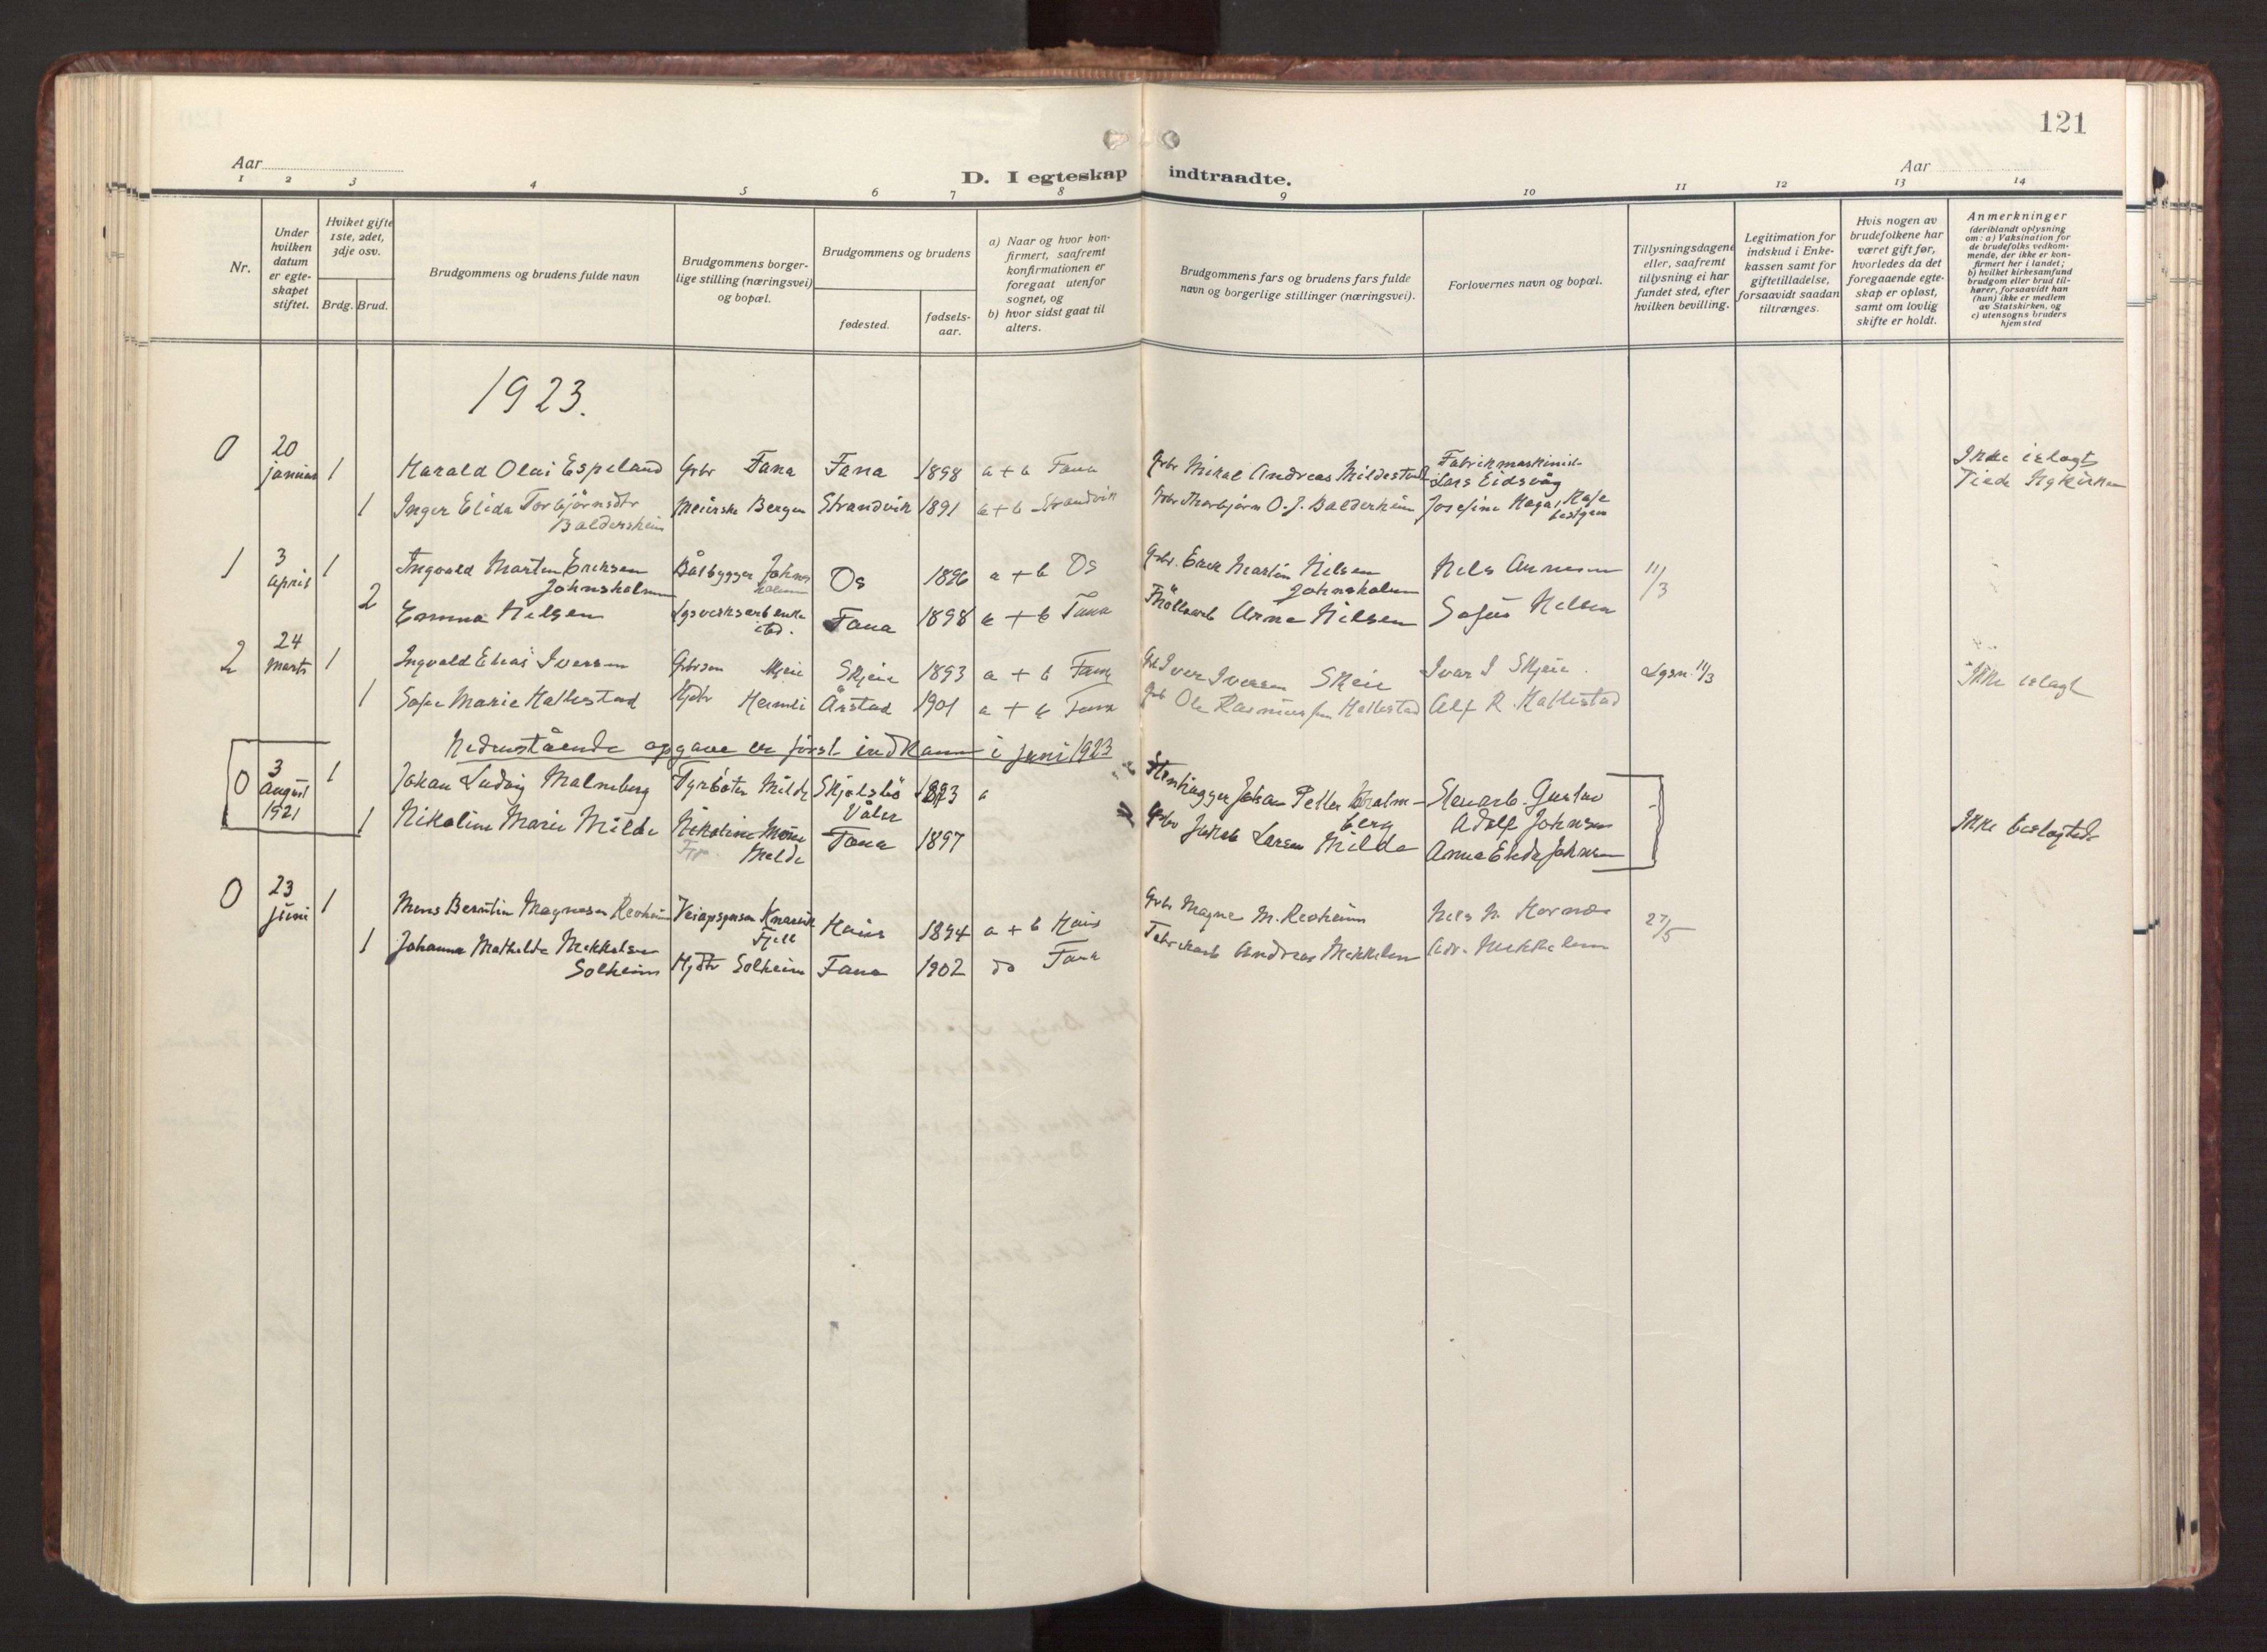 121
Aar
D. I egteskap indtraadte.
Aar
1 2 3 4 5 6 7 8 9 10 11 12 13 14
Nr.
Under
hvilken
datum
er egte-
skapet
stiftet.
Hviket gifte
1ste, 2det,
3dje osv.
Brdg. Brud.
Brudgommens og brudens fulde navn
Brudgommens borger-
lige stilling (næringsvei)
og bopæl.
Brudgommens og brudens
fødested.
fødsels-
aar.
a) Naar og hvor kon-
firmert, saafremt
konfirmationen er
foregaat utenfor
sognet, og
b) hvor sidst gaat til
alters.
Brudgommens fars og brudens fars fulde
navn og borgerlige stillinger (næringsvei).
Forlovernes navn og bopæl.
Tillysningsdagene
eller, saafremt
tillysning ei har
fundet sted, efter
hvilken bevilling.
Legitimation for
indskud i Enke-
kassen samt for
giftetilladelse,
forsaavidt saadan
tiltrænges.
Hvis nogen av
brudefolkene har
været gift før,
hvorledes da det
foregaaende egte-
skap er opløst,
samt om lovlig
skifte er holdt.
Anmerkninger
(deriblandt oplysning
om: a) Vaksination for
de brudefolks vedkom-
mende, der ikke er kon-
firmert her i landet;
b) hvilket kirkesamfund
brudgom eller brud til-
hører, forsaavidt han
(hun) ikke er medlem
av Statskirken, og
c) utensogns bruders
hjemsted
1923.
0 20 januar 1 Harald Olai Espeland Gbr Fana Fana 1898 a + b Fana Gbr Mikal Andreas Mildestad Fabrikmaskinist Lars Eidsvåg Ikke islagt
1 Inger Elida Torbjörnsdtr Baldersheim Meierske Bergen Strandvik 1891 a + b Strandvik Gbr Thorbjørn O. J. Balderheim Josefine Haga, Nykirken
1 3 april 1 Ingvald Martin Eriksen Johnsholmen Båtbygger Os 1896 a + b Os Gbr. Erik Martin Nilsen Johnsholmen Nels Annesen 11/3
2 Emma Nilsen Fana 1898 a + b Fana Arne Nilsen Sofus Nilsen
2 24 marts 1 Ingvald Elias Iversen Gbrsøn Skjeie Skjeie 1893 a + b Fana Gbr Iver Iversen Skeie Ivar I Skjeie Lysn. 11/3 Ikke islagt
1 Sofie Marie Hallestad Hjdtr Heimli Årstad 1901 a + b Fana Gbr Ole Rasmussen Hallestad Alf R. Hallestad
Nedenstående opgave er først indkommen i juni 1923
0 3 August 1921 1 Johan Ludvig Malmberg Fyrböter Milde Skjølsbö Våler 1893 a Stenhugger Johan Petter Malmberg Stenarb. Gustav Adolf Johnsen
1 Nikoline Marie Milde Nikoline Marie Milde Fana 1897 Gbr Jakob Larsen Milde Anna Elida Johnsen Ikke beslagtede
0 23 juni 1 Mons Berntin Magnesen Reoheim Knarvik Fjell Haus 1894 a + b Haus Gbr Magne M. Reoheim Nils N. Hornes 27/5
1 Johanna Mathilde Mikkelsen Solheim Hjdtr Solheim Fana 1902 do Fana Fabrikarb Andreas Mikkelsen Adr. Mikkelsen